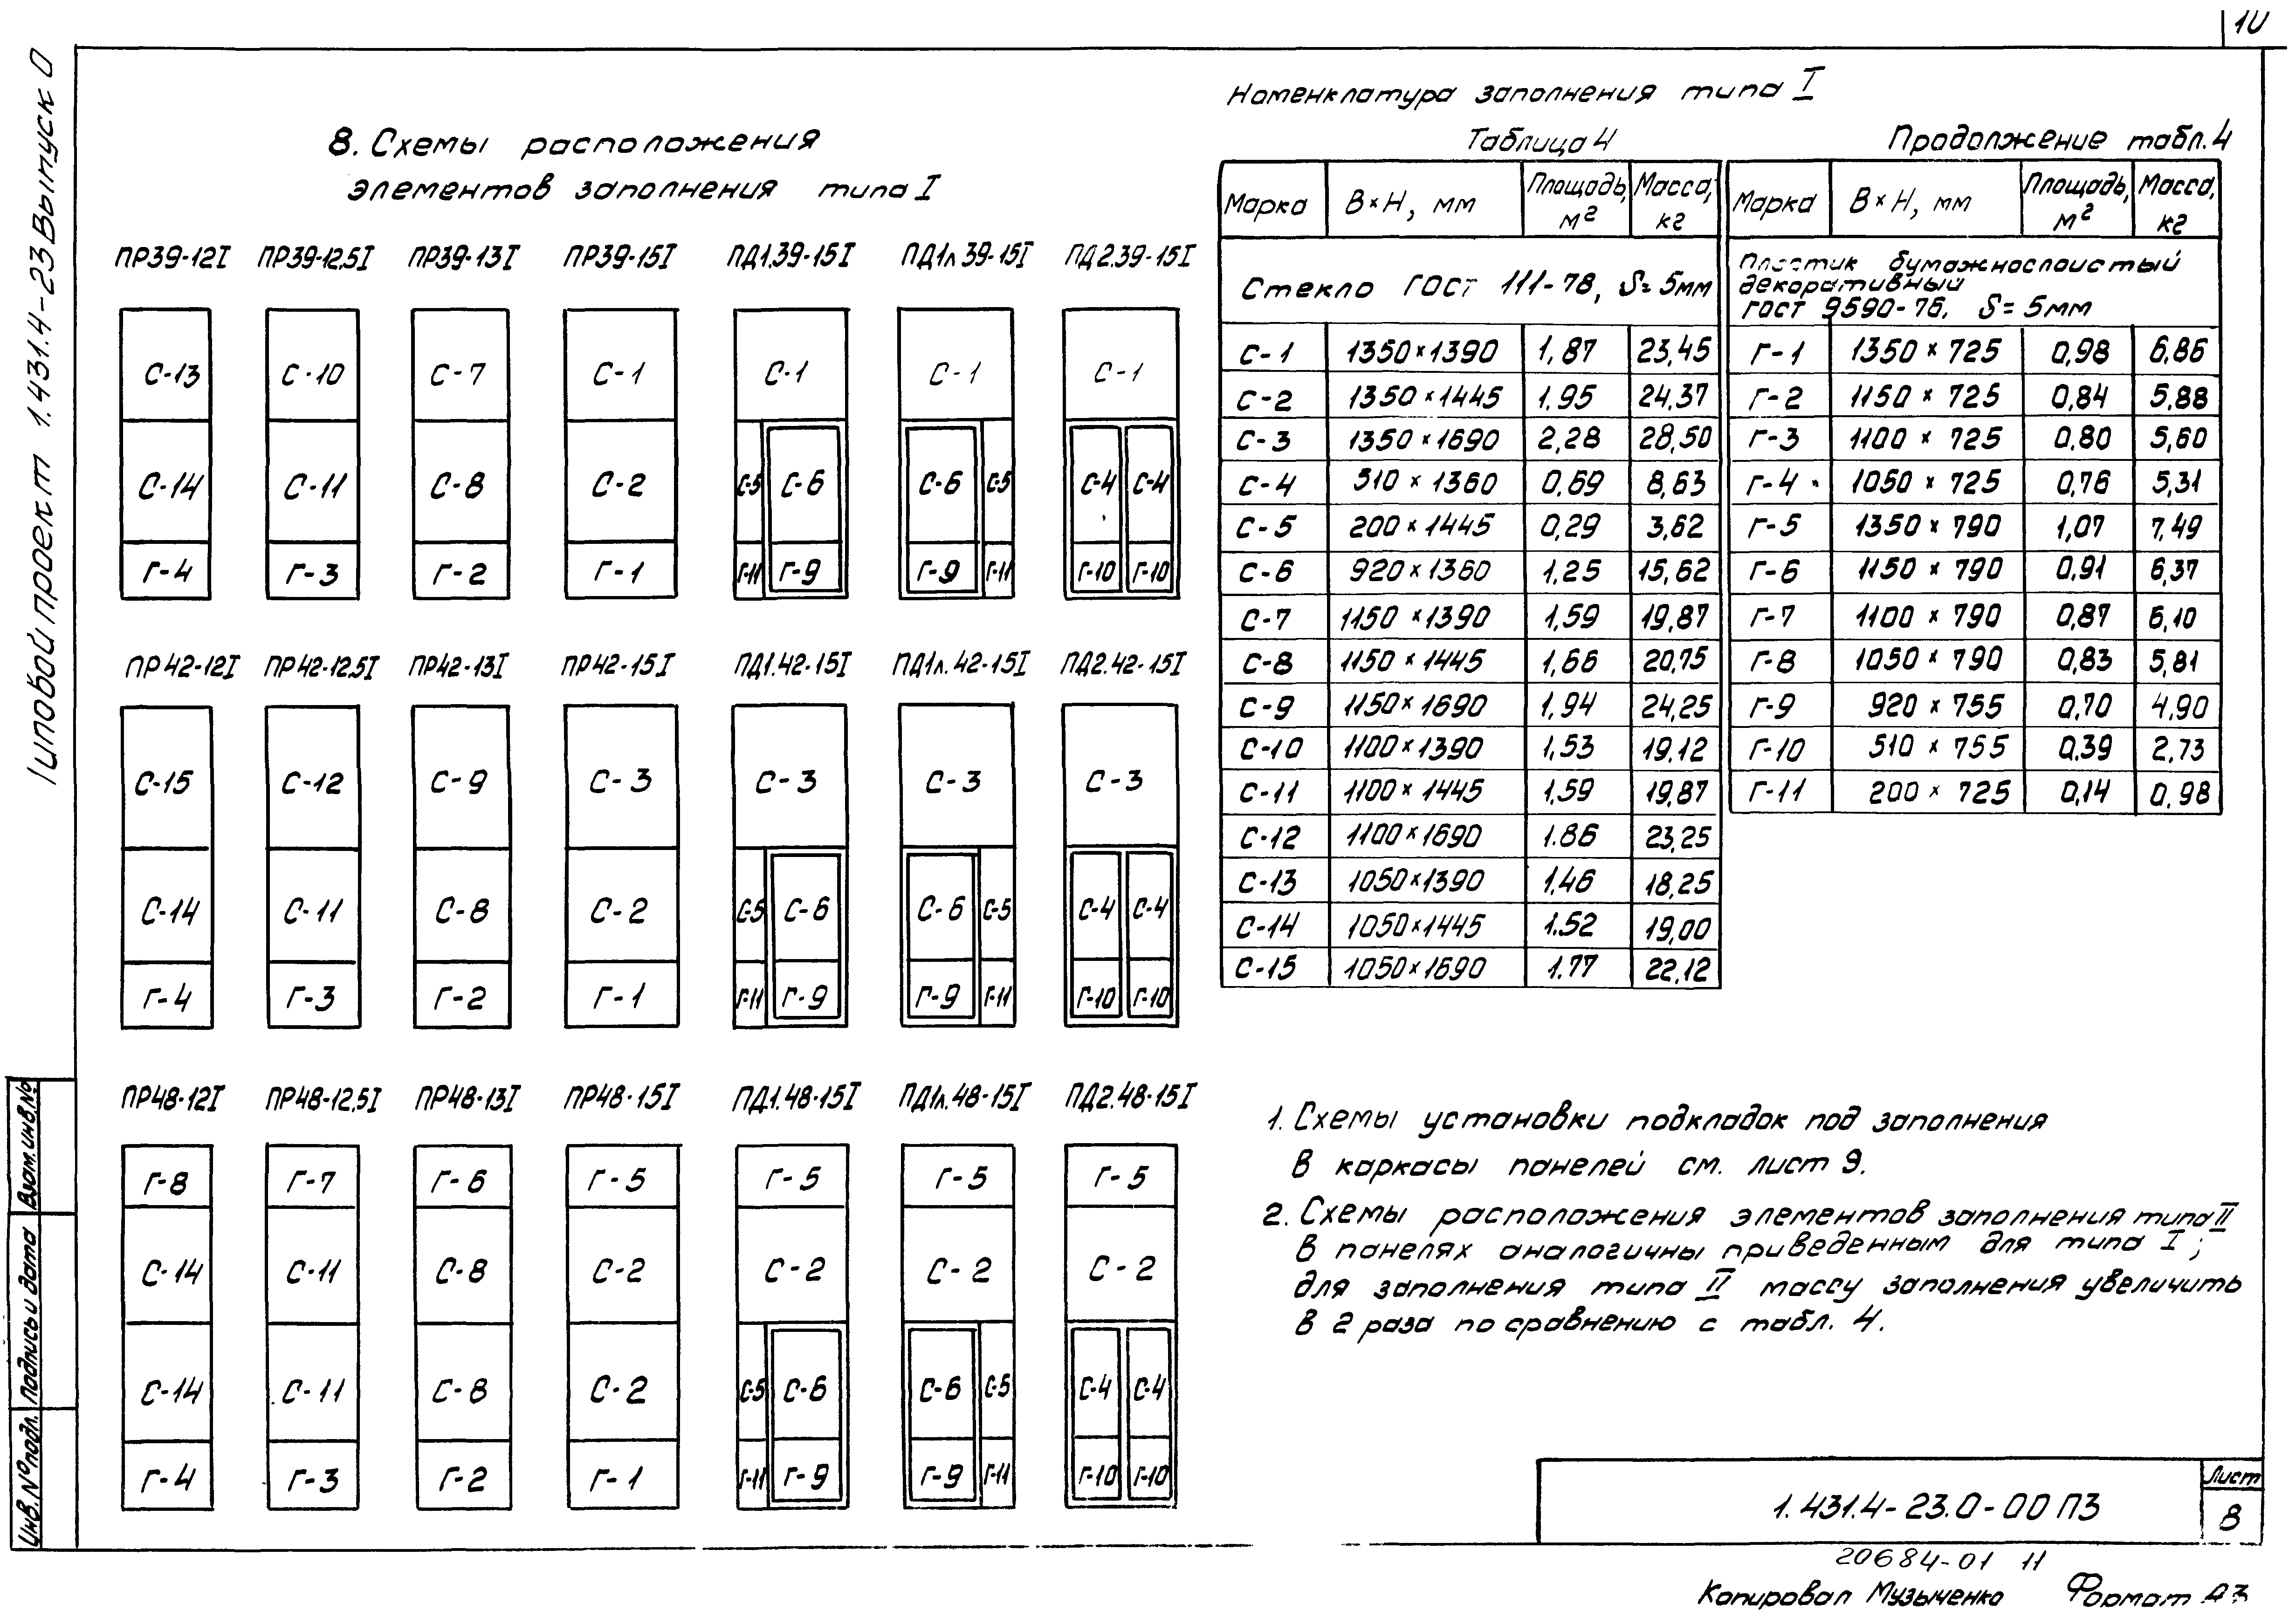 10
Типовой проект 1.431.4-23 Выпуск 0
8. Схемы расположения
элементов заполнения типа I
ПР39-12I ПР39-12,5I ПР39-13I ПР39-15I ПД1.39-15I ПД1л 39-15I ПД2.39-15I
С-13 С-10 С-7 С-1 С-1 С-1 С-1
С-14 С-11 С-8 С-2 С-5 С-6 С-6 С-5 С-4 С-4
Г-4 Г-3 Г-2 Г-1 Г-11 Г-9 Г-9 Г-11 Г-10 Г-10
ПР42-12I ПР42-12.5I ПР42-13I ПР42-15I ПД1.42-15I ПД1л.42-15I ПД2.42-15I
С-15 С-12 С-9 С-3 С-3 С-3 С-3
С-14 С-11 С-8 С-2 С-5 С-6 С-6 С-5 С-4 С-4
Г-4 Г-3 Г-2 Г-1 Г-11 Г-9 Г-9 Г-11 Г-10 Г-10
ПР48-12I ПР48-12,5I ПР48-13I ПР48-15I ПД1.48-15I ПД1л.48-15I ПД2.48-15I
Г-8 Г-7 Г-6 Г-5 Г-5 Г-5 Г-5
С-14 С-11 С-8 С-2 С-2 С-2 С-2
С-14 С-11 С-8 С-2 С-5 С-6 С-6 С-5 С-4 С-4
Г-4 Г-3 Г-2 Г-1 Г-11 Г-9 Г-9 Г-11 Г-10 Г-10
Номенклатура заполнения типа I
Таблица 4
Марка В×Н, мм Площадь, м² Масса, кг
Стекло ГОСТ 111-78, S=5мм
С-1 1350×1390 1,87 23,45
С-2 1350×1445 1.95 24,37
С-3 1350×1690 2,28 28,50
С-4 510×1360 0,69 8,63
С-5 200×1445 0,29 3,62
С-6 920×1360 1,25 15,62
С-7 1150×1390 1,59 19,87
С-8 1150×1445 1,66 20,75
С-9 1150×1690 1,94 24,25
С-10 1100×1390 1,53 19,12
С-11 1100×1445 1,59 19,87
С-12 1100×1690 1.86 23,25
С-13 1050×1390 1,46 18,25
С-14 1050×1445 1.52 19,00
С-15 1050×1690 1.77 22,12
Продолжение табл. 4
Марка В×Н, мм Площадь, м² Масса, кг
Пластик бумажнослоистый
декоративный
ГОСТ 9590-76, S=5мм
Г-1 1350×725 0,98 6,86
Г-2 1150×725 0,84 5,88
Г-3 1100×725 0,80 5,60
Г-4 1050×725 0,76 5,31
Г-5 1350×790 1,07 7,49
Г-6 1150×790 0,91 6,37
Г-7 1100×790 0,87 6,10
Г-8 1050×790 0,83 5,81
Г-9 920×755 0,70 4,90
Г-10 510×755 0,39 2,73
Г-11 200×725 0,14 0,98
1. Схемы установки подкладок под заполнения
в каркасы панелей см. лист 9.
2. Схемы расположения элементов заполнения типа II
в панелях аналогичны приведенным для типа I;
для заполнения типа II массу заполнения увеличить
в 2 раза по сравнению с табл. 4.
Инв.№подл. Подпись и дата Взам.инв.№
1.431.4-23.0-00 ПЗ
Лист
8
20684-01 11
Копировал Музыченко Формат А3